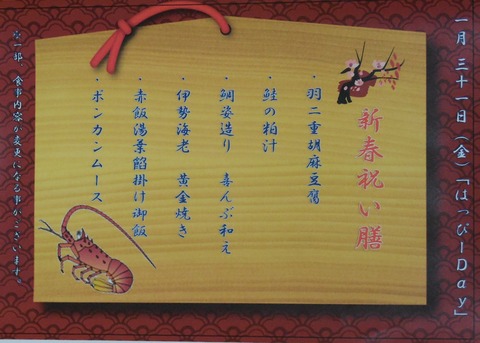 一月 三十一日(金)「はっぴーDay」
新春祝い膳
・羽二重胡麻豆腐
・鮭の粕汁
・鯛姿造り 喜んぶ和え
・伊勢海老 黄金焼き
・赤飯湯葉餡掛け御飯
・ポンカンムース
※一部 食事内容が変更になる事がございます。